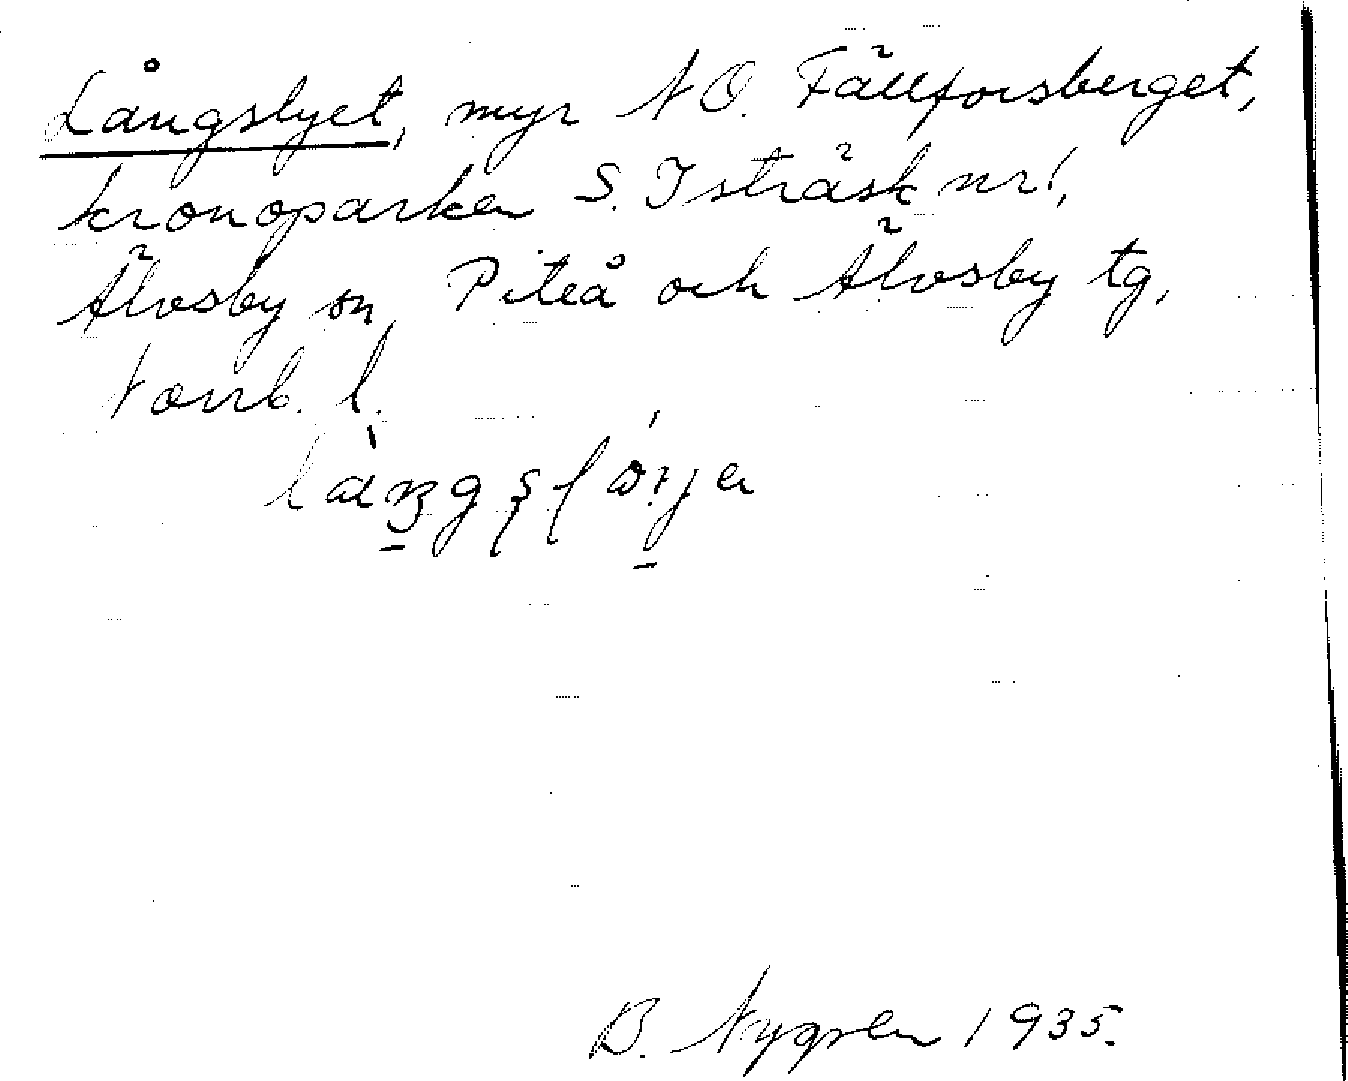 Långslyet, myr NO. Fällforsberget,
kronoparken S. Isträsk nr 1,
Älvsby sn, Piteå och Älvsby tg,
Norrb. l.
B. Nygren 1935.